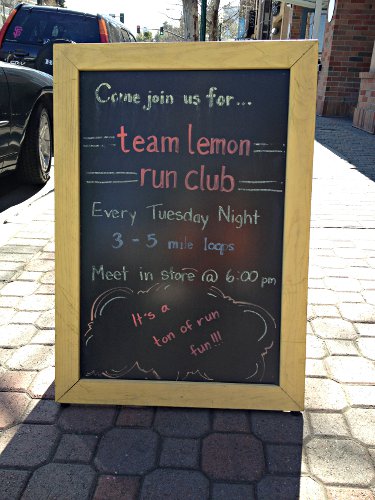 Come join us for...
team lemon
run club
Every Tuesday Night
3 - 5 mile loops
Meet in store @ 6:00 pm
It's a
ton of run
fun!!!